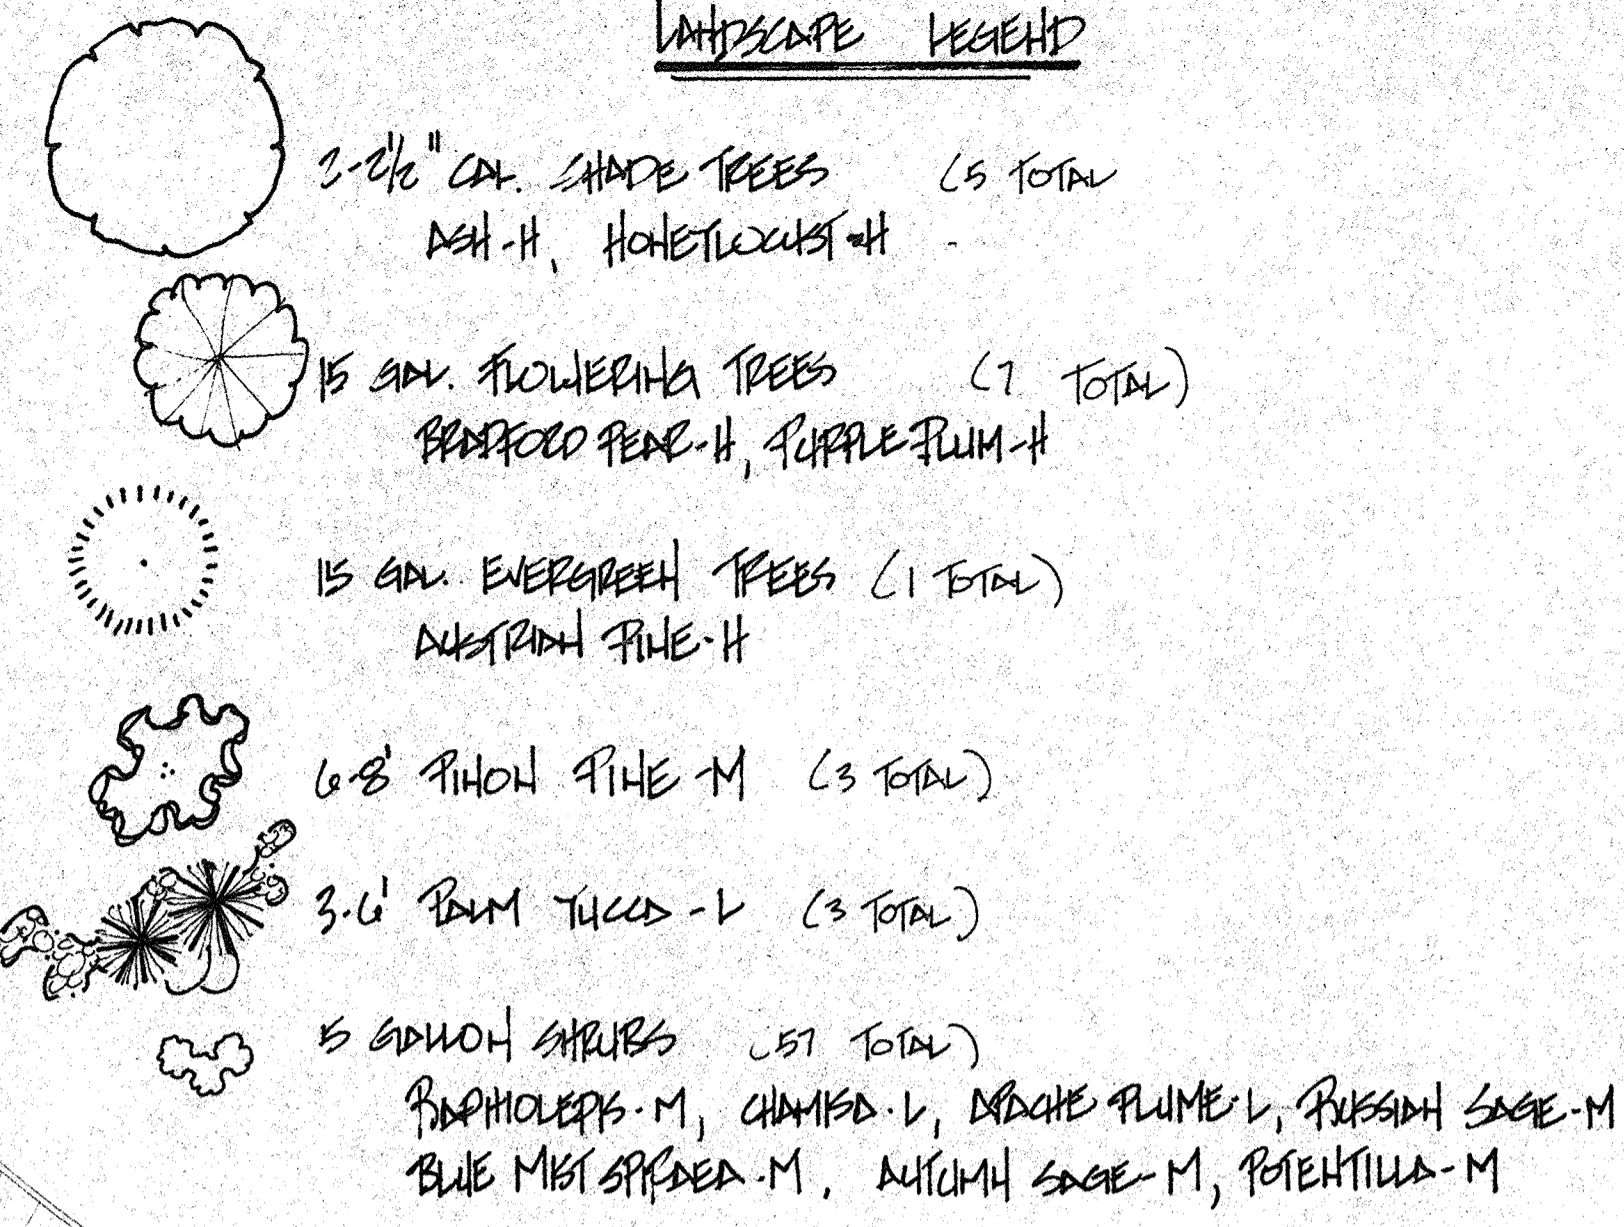 LANDSCAPE LEGEND
2-2½" CAL. SHADE TREES (5 TOTAL
ASH-H, HONEYLOCUST-H
15 GAL. FLOWERING TREES (7 TOTAL)
BRADFORD PEAR-H, PURPLE PLUM-H
15 GAL. EVERGREEN TREES (1 TOTAL)
AUSTRIAN PINE-H
6-8' PINON PINE-M (3 TOTAL)
3-6' PALM YUCCA-L (3 TOTAL)
5 GALLON SHRUBS (57 TOTAL)
RAPHIOLEPIS-M, CHAMISA-L, APACHE PLUME-L, RUSSIAN SAGE-M
BLUE MIST SPIRAEA-M, AUTUMN SAGE-M, POTENTILLA-M